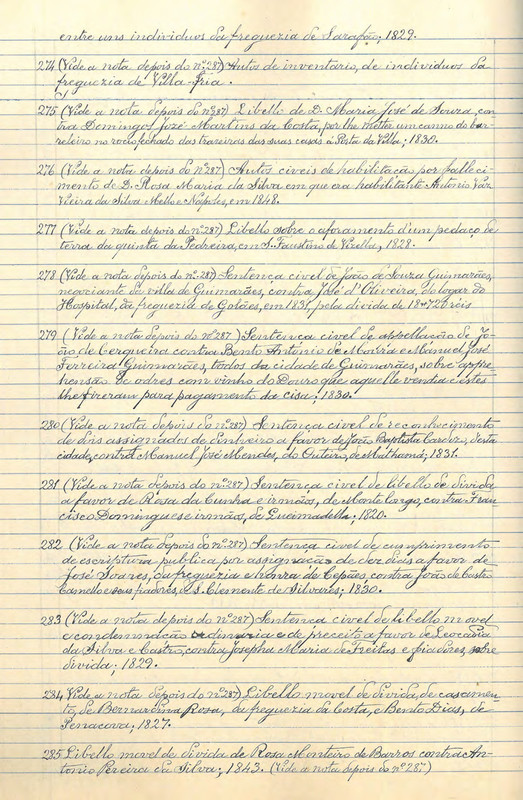 entre uns individuos da freguezia de Sarafão; 1829.
274 (Vide a nota depois do nº 287) Autos de inventario, de individuos da
freguezia de Villa-Fria.
275 (Vide a nota depois do nº 287) Libello de D. Maria José de Souza, con-
tra Domingos José Martins da Costa, por lhe metter um canno do bar-
releiro no rocio fechado das trazeiras das suas casas à Porta da Villa; 1830.
276 (Vide a nota depois do nº 287) Autos civeis de habilitação por falleci-
mento de D. Rosa Maria da Silva em que era habilitante Antonio Vaz
Vieira da Silva Mello e Napoles, em 1848.
277 (Vide a nota depois do nº 287) Libello sobre o aforamento d'um pedaço de
terra da quinta da Pedreira, em S. Faustino de Vizella, 1828.
278 (Vide a nota depois do nº 287) Sentença civel de João de Souza Guimarães,
negociante da villa de Guimarães, contra José d'Oliveira, do logar do
Hospital, da freguezia de Golães, em 1831, pela divida de 18$720 réis
279 (Vide a nota depois do nº 287) Sentença civel de appellação de Jo-
ão de Cerqueira contra Bento António de Moura e Manuel José
Ferreira Guimarães, todos da cidade de Guimarães, sobre appre-
henção de odres com vinho do Douro que aquelle vendia e estes
lhe fizeram para pagamento da cisa; 1830.
280 (Vide a nota depois do nº 287) Sentença civel de reconhecimento
de dois assignados de dinheiro a favor de João Baptista Cardozo, desta
cidade, contra Manuel José Mendes, do Outeiro, de Mathamá; 1831.
281 (Vide a nota depois do nº 287) Sentença civel de libello de divida
a favor de Rosa da Cunha e irmãos, de Monte longo, contra Fran-
cisco Domingues e irmãos, de Queimadella; 1820.
282 (Vide a nota depois do nº 287) Sentença civel de cumprimento
de escriptura publica por assignação de dez dias a favor de
José Soares, da freguezia e honra de Cepães, contra João de Castro
Camello e seus fiadores, de S. Clemente de Silvares; 1830.
283 (Vide a nota depois do nº 287) Sentença civel de libello movel
e condemnação ordinaria e de preceito a favor de Leocadia
da Silva e Castro, contra Josepha Maria de Freitas e fiadores, sobre
divida; 1829.
284 Vide a nota depois do nº 287) Libello movel de divida, de casamen-
to, de Bernardina Rosa, da freguezia da Costa, e Bento Dias, de
Penacova; 1827.
285 Libello movel de divida de Rosa Monteiro de Barros contra An-
tonio Pereira da Silva; 1843. (Vide a nota depois do nº 287)